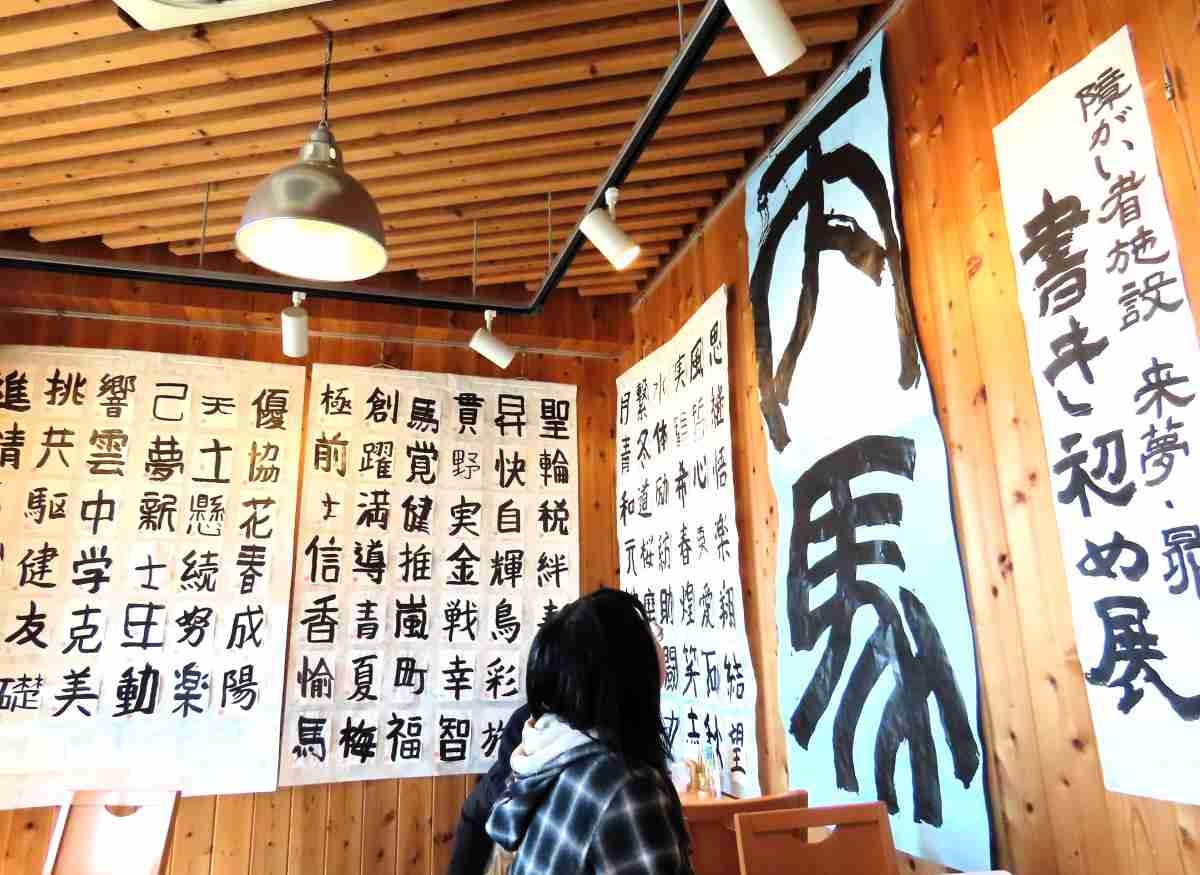 障がい者施設 来夢・
書き初め展
丙馬
思悟楽翔結望
風心愛秋
実希春煌笑
水体励紡闘
繋冬道桜
月青和元
聖輪税絆
昇快自輝鳥彩旅
貫野実金戦幸智
馬覚健推嵐町福
創躍満導青夏梅
極前士信香愉馬
優協花春成陽
天士懸続努楽
己夢新士動
響雲中学克美
挑共駆健友礎
進